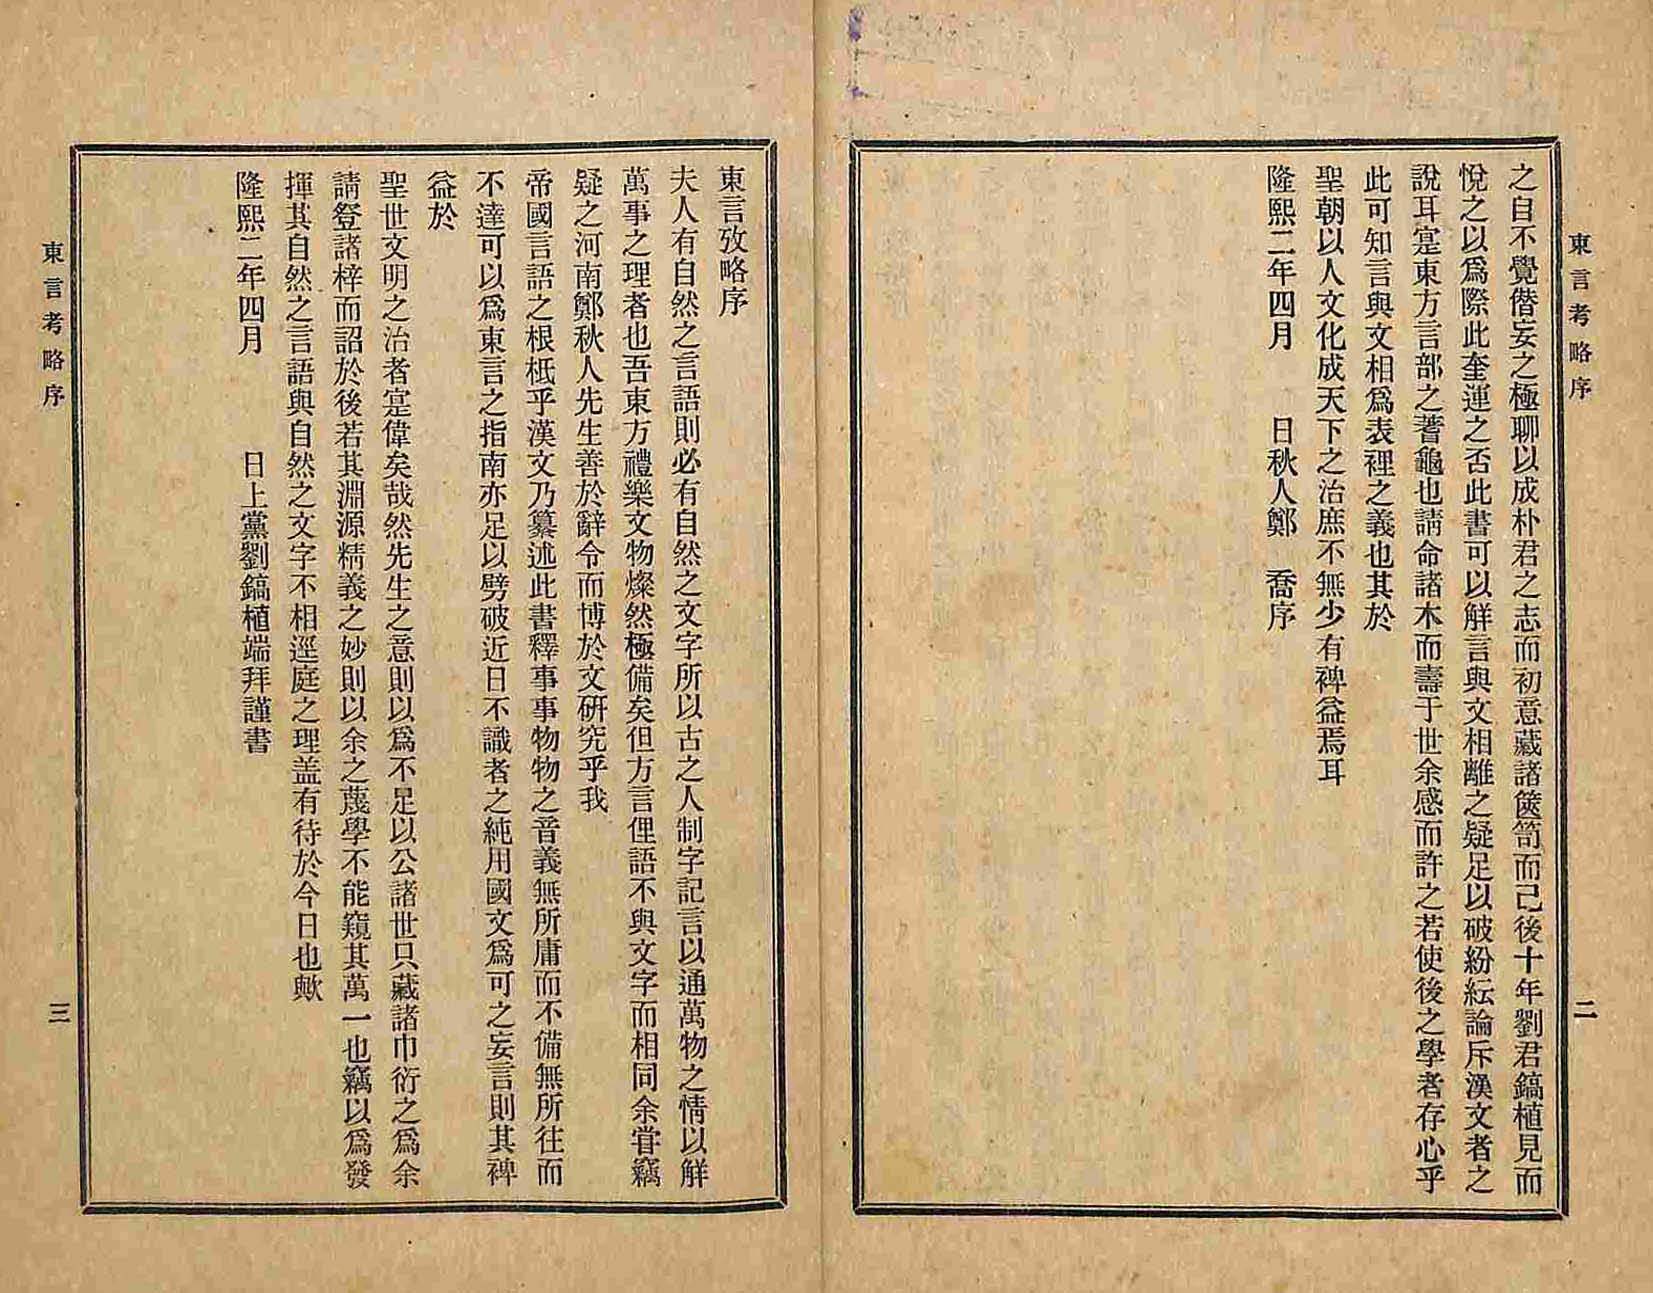 東言考略序
之自不覺僭妄之極聊以成朴君之志而初意藏諸篋笥而已後十年劉君鎬植見而
悅之以爲際此奎運之否此書可以觧言與文相離之疑足以破紛紜論斥漢文者之
說耳寔東方言部之蓍龜也請命諸木而壽于世余感而許之若使後之學者存心乎
此可知言與文相爲表裡之義也其於
聖朝以人文化成天下之治庶不無少有裨益焉耳
隆熙二年四月 日秋人鄭 喬序
二
東言攷略序
夫人有自然之言語則必有自然之文字所以古之人制字記言以通萬物之情以觧
萬事之理者也吾東方禮樂文物燦然極備矣但方言俚語不與文字而相同余甞竊
疑之河南鄭秋人先生善於辭令而博於文硏究乎我
帝國言語之根柢乎漢文乃纂述此書釋事事物物之音義無所庸而不備無所往而
不達可以爲東言之指南亦足以劈破近日不識者之純用國文爲可之妄言則其裨
益於
聖世文明之治者寔偉矣哉然先生之意則以爲不足以公諸世只藏諸巾衍之爲余
請登諸梓而詔於後若其淵源精義之妙則以余之蔑學不能窺其萬一也竊以爲發
揮其自然之言語與自然之文字不相逕庭之理盖有待於今日也歟
隆熙二年四月 日上黨劉鎬植端拜謹書
東言考略序
三